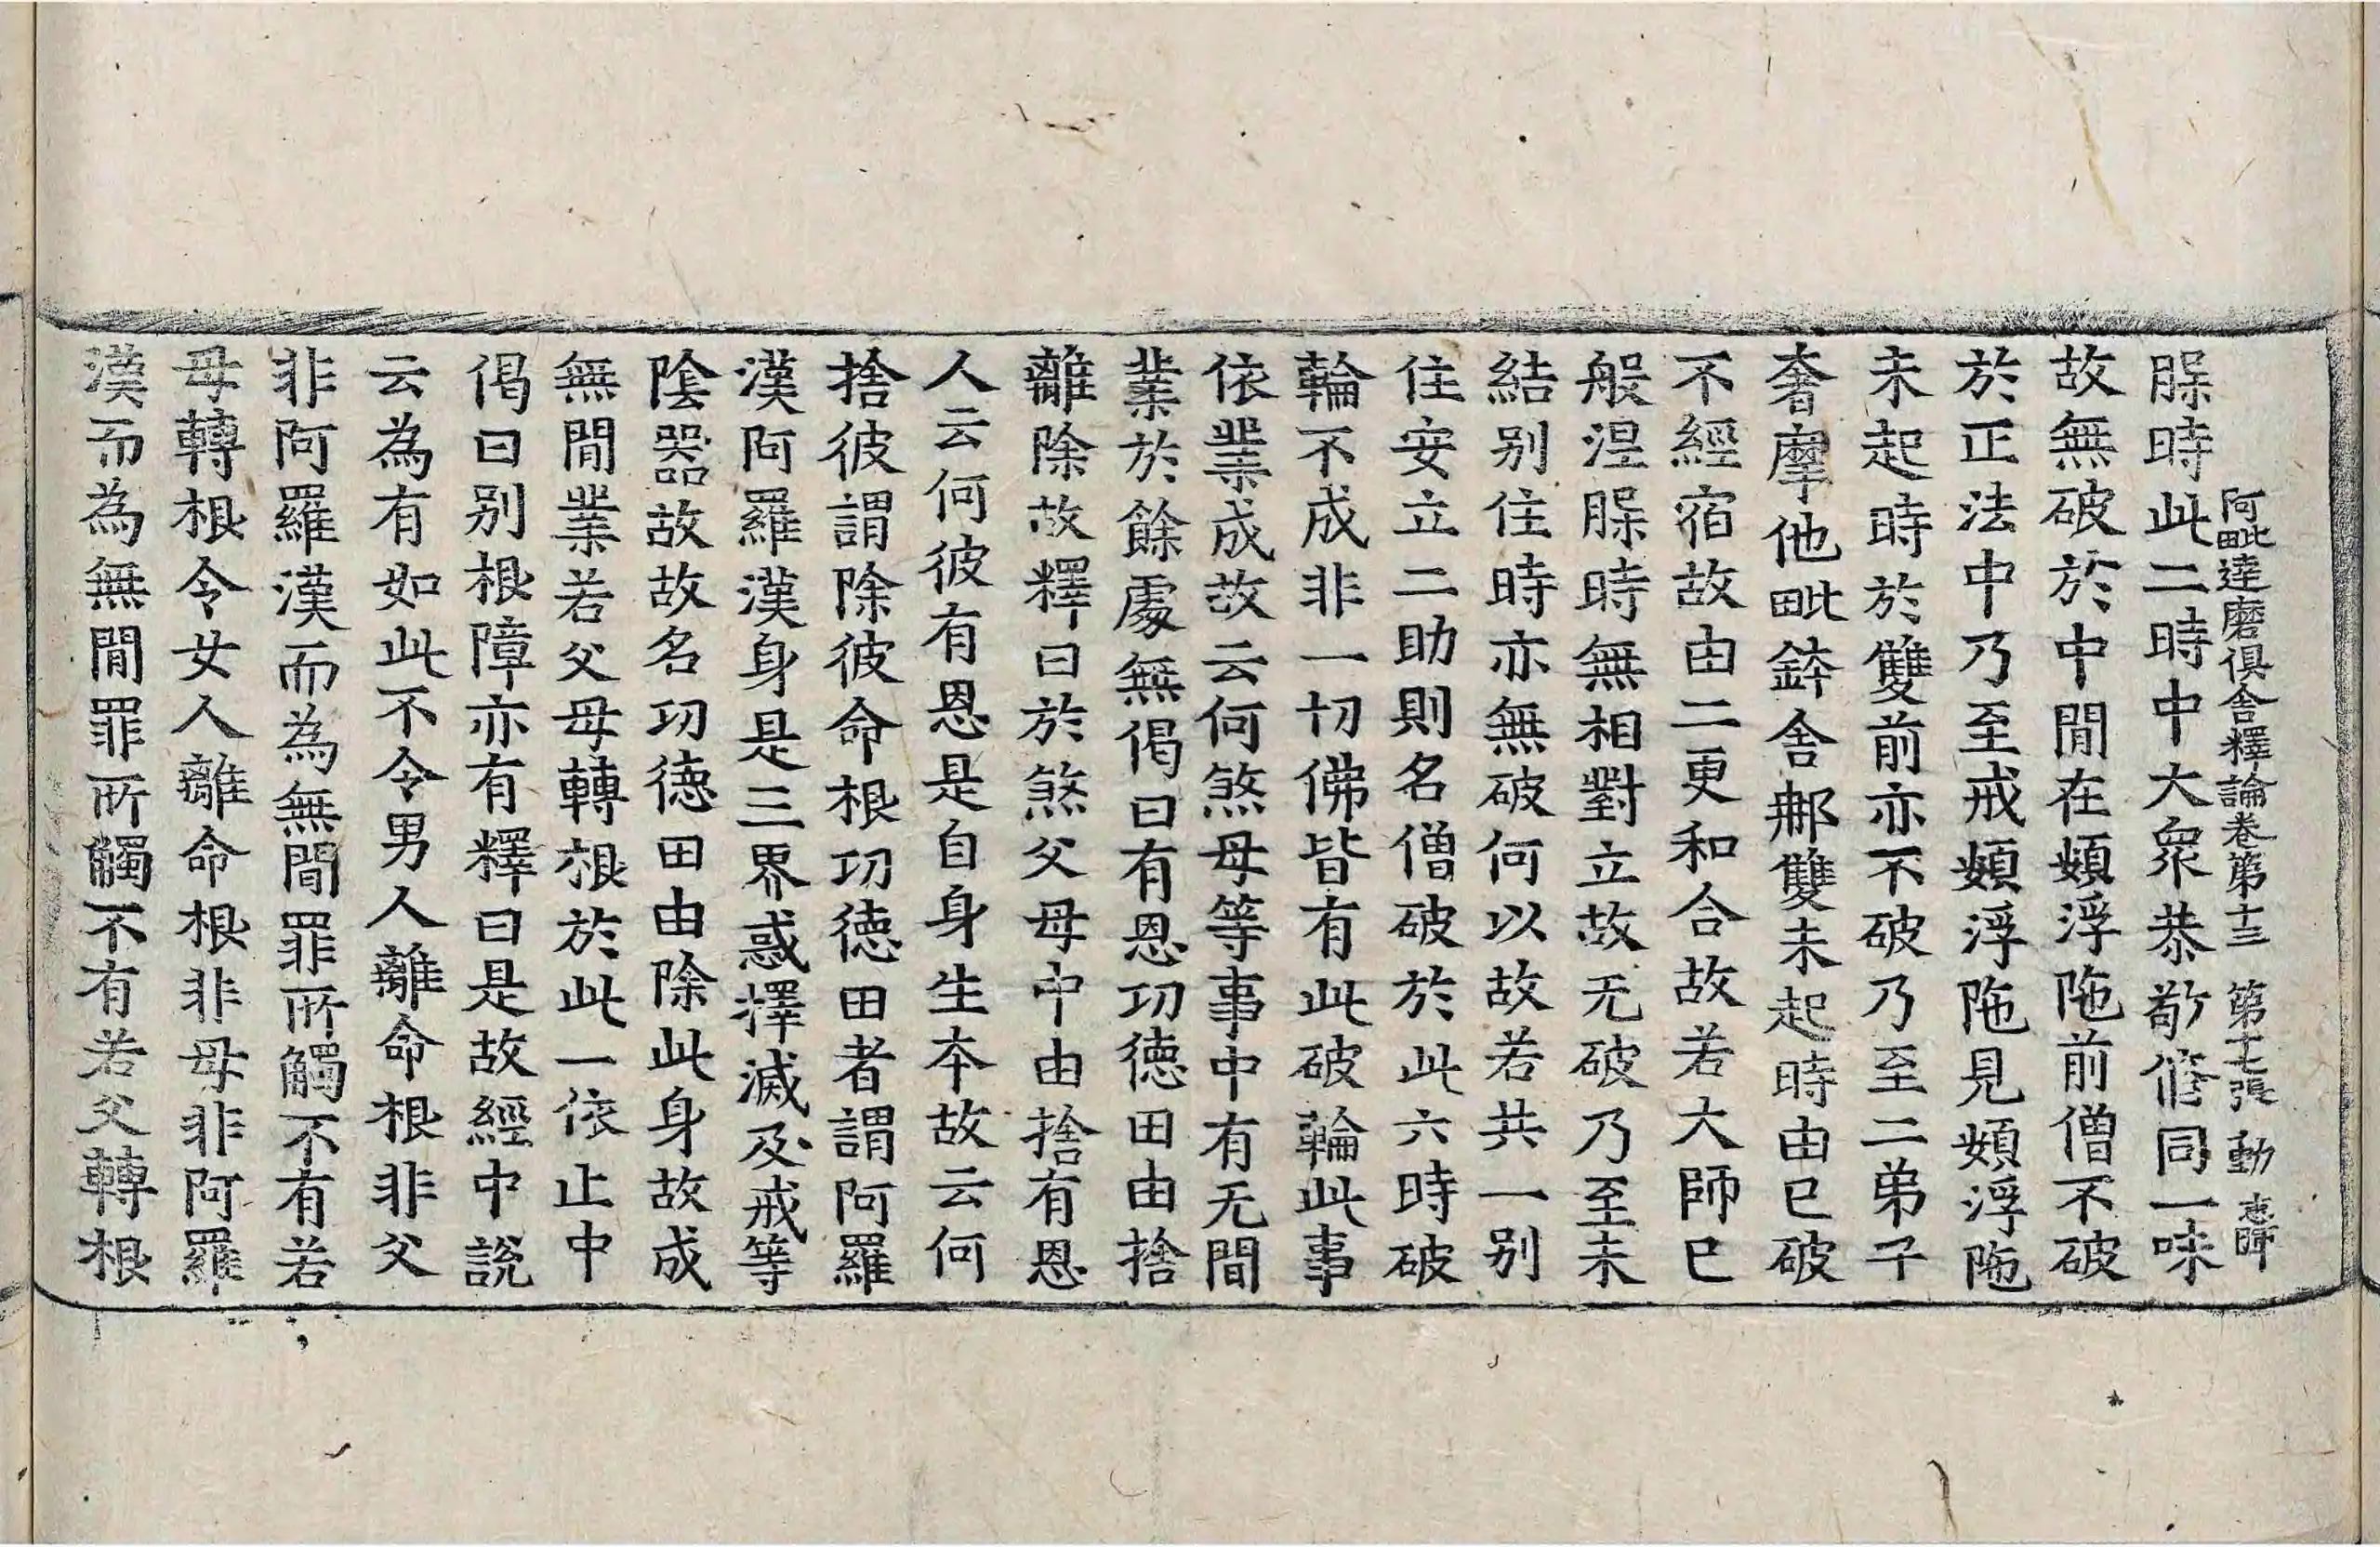 阿毗達磨俱舍釋論卷第十三 第十七張 動 志師
脲時此二時中大衆恭敬修同一味
故無破於中閒在頞浮陁前僧不破
於正法中乃至戒頞浮陁見頞浮陁
未起時於雙前亦不破乃至二弟子
奢摩他毗鉢舍那雙未起時由已破
不經宿故由二更和合故若大師已
般涅脲時無相對立故无破乃至未
結别住時亦無破何以故若共一别
住安立二助則名僧破於此六時破
輪不成非一切佛皆有此破輪此事
依業成故云何煞母等事中有无間
業於餘處無偈曰有恩功德田由捨
離除故釋曰於煞父母中由捨有恩
人云何彼有恩是自身生本故云何
捨彼謂除彼命根功德田者謂阿羅
漢阿羅漢身是三界惑擇滅及戒等
陰器故故名功德田由除此身故成
無閒業若父母轉根於此一依止中
偈曰别根障亦有釋曰是故經中說
云為有如此不令男人離命根非父
非阿羅漢而為無間罪所觸不有若
母轉根令女人離命根非母非阿羅
漢而為無閒罪所觸不有若父轉根